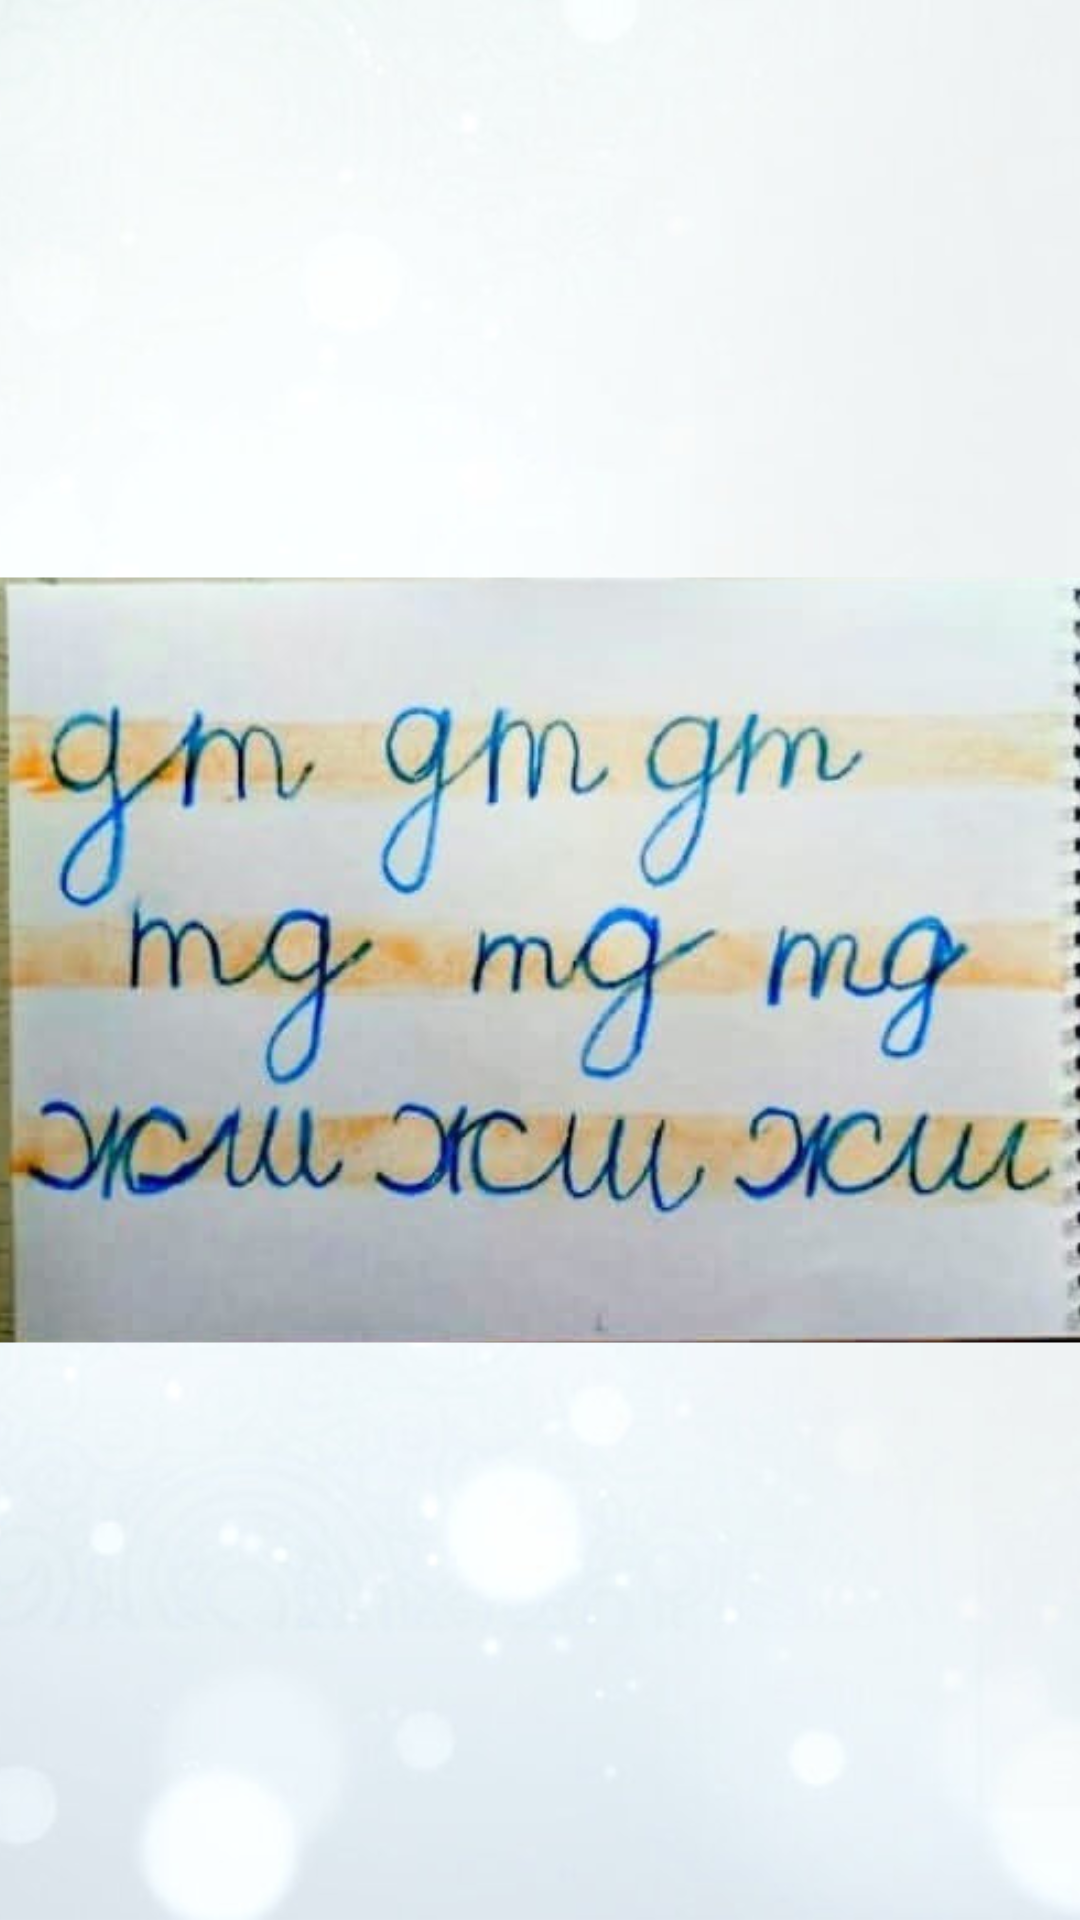 дт дт дт
тд тд тд
жш жш жш